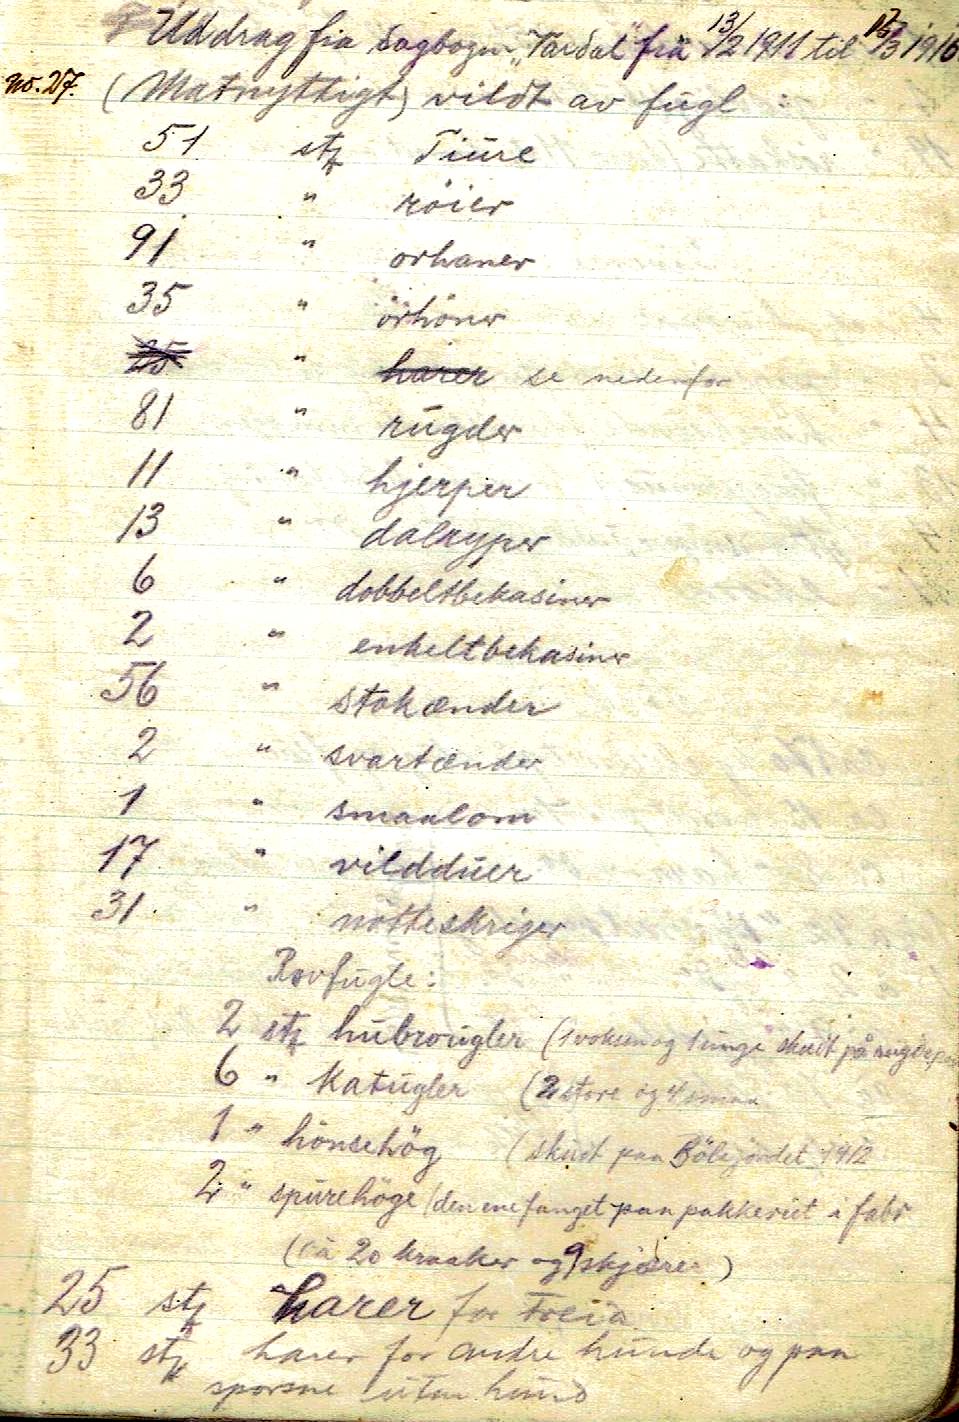 Uddrag fra dagbogen "Tardal" fra 13/2 1911 til 16/3 1916
No. 27. (Matnyttigt) vildt av fugl :
51 stk Tiure
33 " röier
91 " orhaner
35 " örhöner
25 " harer se nedenfor
81 " rugder
11 " hjerper
13 " dalryper
6 " dobbeltbekasiner
2 " enkeltbekasiner
56 " stokænder
2 " svartænder
1 " smaalom
17 " vildduer
31. " nötteskriger
Rovfugle:
2 stk hubrougler (1 voksen og 1 unge skudt på
6 " Katugler (2 store og 4 smaa
1 " hönsehög (skudt paa Bölejordet 1912
2 " spurehöge (den ene fanget paa pakkeriet i fabr
(ca 20 kraaker og 9 skjærer)
25 stk harer for Freia
33 stk harer for andre hunde og paa
sporsne uten hund